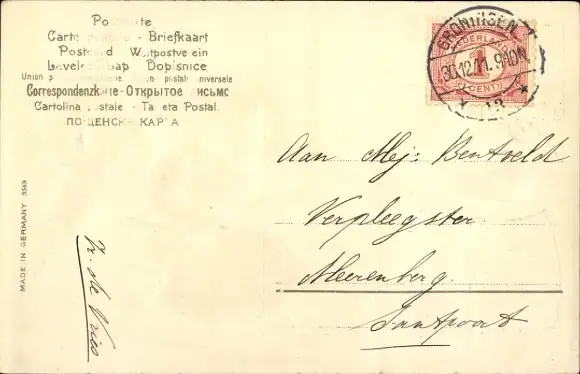 Postkarte
Carte postale - Briefkaart
Postcard Weltpostverein
Levelezö-Lap Dopisnice
Union postale universelle Union postale universelle
Correspondenzkarte - Открытое письмо
Cartolina postale - Tarjeta Postal.
ПОЩЕНСКА КАРТА
GRONINGEN
30.12.11. 9-10N
NEDERLAND
1
CENT
Aan Mej: Bentveld
Verpleegster
Meerenberg.
Santpoort
de Vries
MADE IN GERMANY 3549